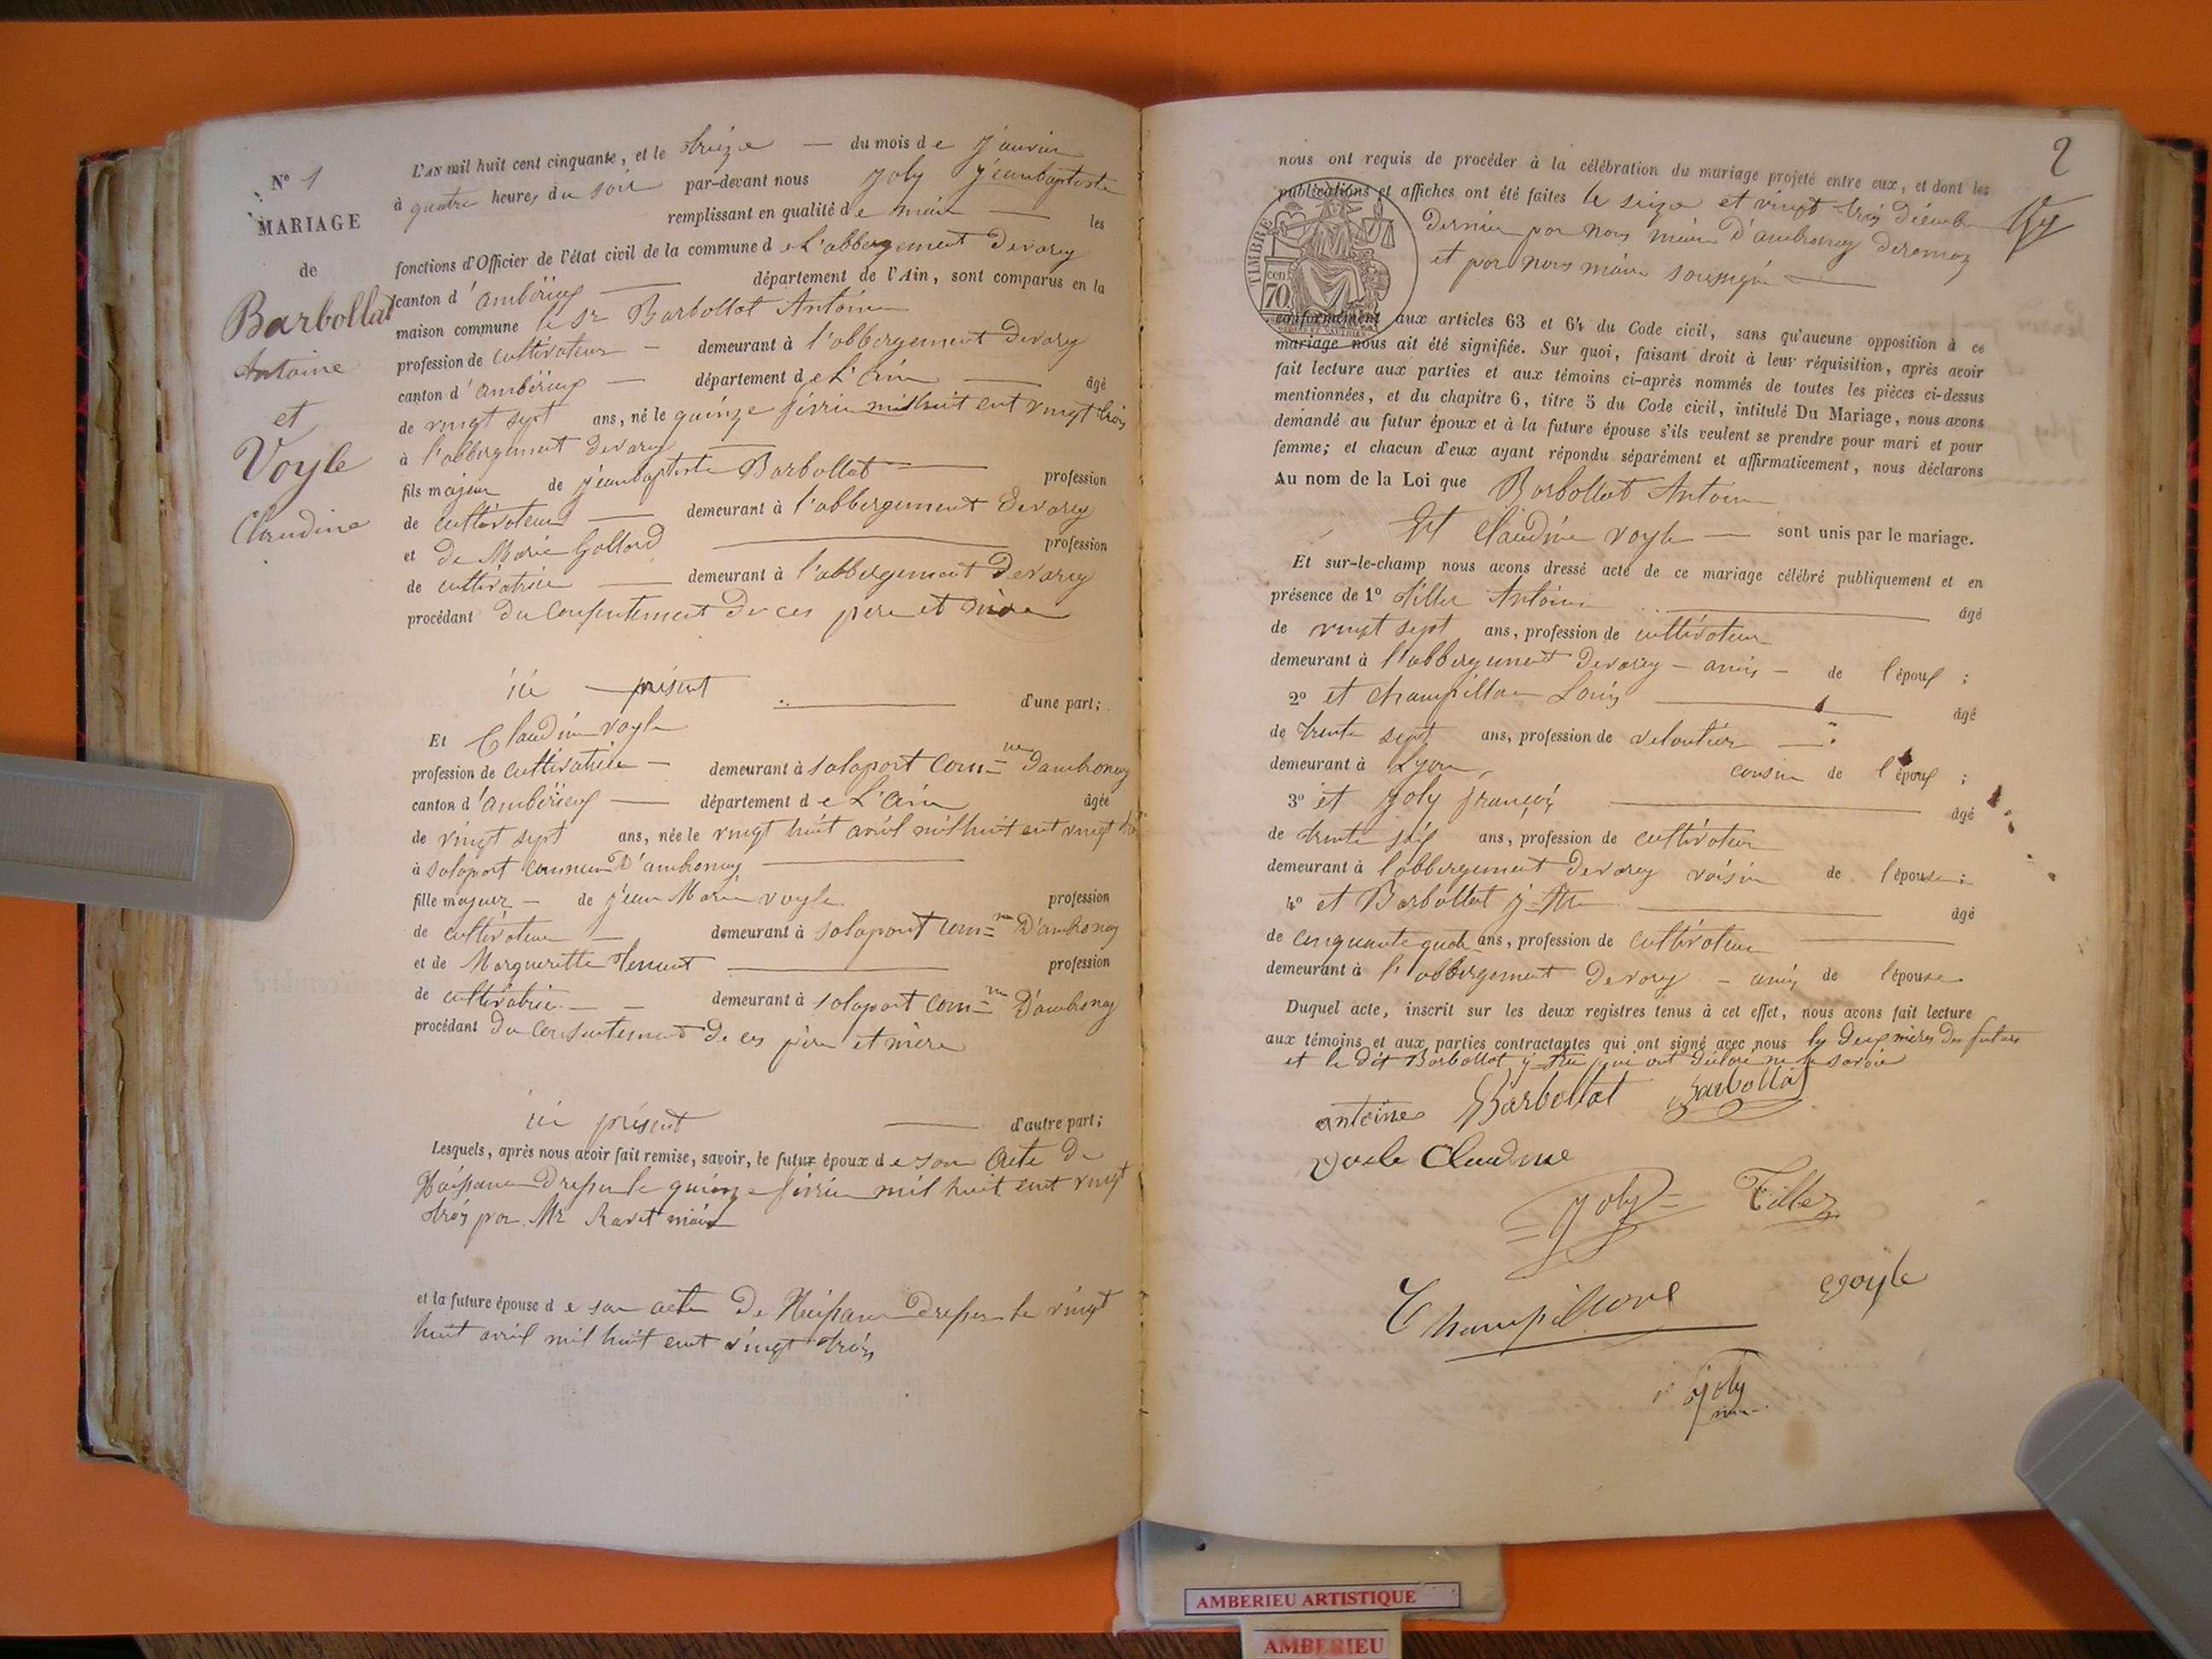 N° 1
MARIAGE
de
Barbollat
Antoine
et
Voyle
Claudine
L'AN mil huit cent cinquante, et le treize — du mois de janvier
à quatre heures du soir par-devant nous Joly jeanbaptiste
remplissant en qualité de maire — les
fonctions d'Officier de l'état civil de la commune de L'abbergement Devarey
canton d'ambérieux — département de l'Ain, sont comparus en la
maison commune le Sr Barbollat Antoine
profession de cultivateur — demeurant à l'abbergement Devarey
canton d'ambérieux — département de L'ain — âgé
de vingt sept ans, né le quinze février mil huit cent vingt trois
à l'abbergement devarey —
fils majeur de jeanbaptiste Barbollat — profession
de cultivateur — demeurant à l'abbergement Devarey
et de Marie Gollard — profession
de cultivatrice — demeurant à l'abbergement Devarey
procédant du consentement De ces pere et mère
ici — présent — d'une part;
Et Claudine voyle
profession de cultivatrice — demeurant à solaport com=ne Dambronay
canton d'ambérieux — département de L'ain âgée
de vingt sept ans, née le vingt huit avril mil huit cent vingt trois
à solaport commune D'ambronay —
fille majeur — de jean Marie voyle profession
de cultivateur — demeurant à solaport com=ne D'ambronay
et de Margueritte — profession
de cultivatrice — demeurant à solaport com=ne D'ambronay
procédant du consentement De ces père et mère
ici présent — d'autre part;
Lesquels, après nous avoir fait remise, savoir, le futur époux de son acte De
Naissance Dressée le quinze février mil huit cent vingt
trois par Mr Ravet maire
et la future épouse de son acte De Naissance Dressée le vingt
huit avril mil huit cent vingt trois
2
nous ont requis de procéder à la célébration du mariage projeté entre eux, et dont les
publications et affiches ont été faites le seize et vingt trois Décembre
Dernier par nous maire D'ambronay
et par nous maire soussigné —
TIMBRE
70 cen
conformément aux articles 63 et 64 du Code civil, sans qu'aucune opposition à ce
mariage nous ait été signifiée. Sur quoi, faisant droit à leur réquisition, après avoir
fait lecture aux parties et aux témoins ci-après nommés de toutes les pièces ci-dessus
mentionnées, et du chapitre 6, titre 5 du Code civil, intitulé Du Mariage, nous avons
demandé au futur époux et à la future épouse s'ils veulent se prendre pour mari et pour
femme; et chacun d'eux ayant répondu séparément et affirmativement, nous déclarons
Au nom de la Loi que Barbollat Antoine
Et Claudine voyle — sont unis par le mariage.
Et sur-le-champ nous avons dressé acte de ce mariage célébré publiquement et en
présence de 1° tiller Antoine — âgé
de vingt sept ans, profession de cultivateur
demeurant à l'abbergement Devarey — amis — de l'époux;
2° et Champillon Louis — âgé
de trente sept ans, profession de veloutier —
demeurant à Lyon, cousin de l'époux;
3° et Joly françois — âgé
de trente six ans, profession de cultivateur
demeurant à l'abbergement Devarey voisin de l'épouse;
4° et Barbollat j-Bte — âgé
de cinquante quatre ans, profession de cultivateur —
demeurant à l'abbergement Devarey — amis de l'épouse.
Duquel acte, inscrit sur les deux registres tenus à cet effet, nous avons fait lecture
aux témoins et aux parties contractantes qui ont signé avec nous les Deux mères Des futurs
et le dit Barbollat j-Bte qui ont Déclaré ne le savoir
antoine Barbollat Barbollat
voile Claudine
Joly Tiller
Champillone voyle
joly
maire
AMBERIEU ARTISTIQUE
AMBERIEU